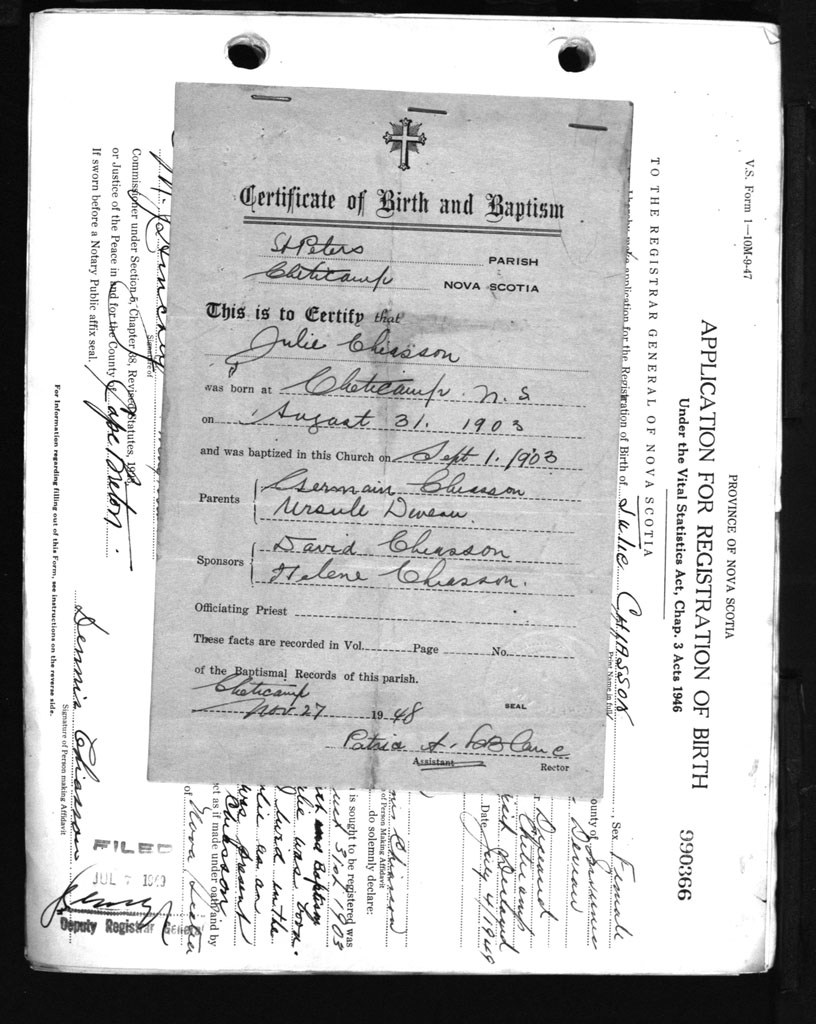 Certificate of Birth and Baptism
St Peters PARISH
Cheticamp NOVA SCOTIA
This is to Certify that
Julie Chiasson
was born at Cheticamp N.S.
on August 31. 1903
and was baptized in this Church on Sept 1. 1903
Parents Germain Chiasson
Ursule Deveau.
Sponsors David Chiasson
Helene Chiasson.
Officiating Priest
These facts are recorded in Vol. Page No.
of the Baptismal Records of this parish.
Cheticamp
Nov. 27 1948
SEAL
Patrick A. LeBlanc
Assistant Rector
V.S. Form 1—10M-9-47
PROVINCE OF NOVA SCOTIA
APPLICATION FOR REGISTRATION OF BIRTH 990366
Under the Vital Statistics Act, Chap. 3 Acts 1946
TO THE REGISTRAR GENERAL OF NOVA SCOTIA
I hereby make application for the Registration of Birth of Julie CHIASSON, Sex Female
Print Name in full
ounty of Inverness
Deveau
Deceased
Cheticamp
Date July 4/1949
Chiasson
of Person Making Affidavit
do solemnly declare:
is sought to be registered was
31st 1903
and Baptism
she was born.
lived in the
was present
Chiasson
ect as if made under oath and by
of Nova Scotia
Signature of
Commissioner under Section 5, Chapter 38, Revised Statutes,
or Justice of the Peace in and for the County of Cape Breton.
If sworn before a Notary Public affix seal.
Dennis Chiasson
Signature of Person making Affidavit
For information regarding filling out of this Form, see instructions on the reverse side.
FILED
JUL 7 1949
Deputy Registrar General